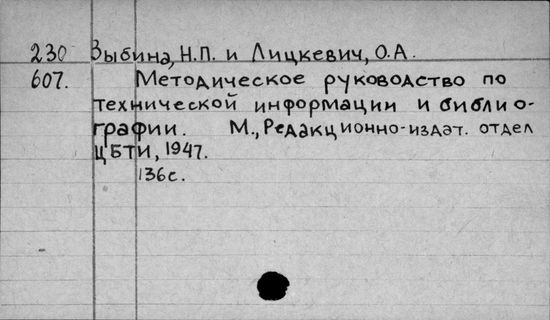 230 Зыбина, Н.П. и Лицкевич, О.А.
607. Методическое руководство по
технической информации и библио-
графии. М., Редакционно-издат. отдел
ЦБТИ, 1947.
136с.